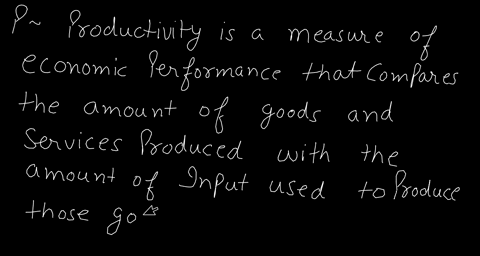 P~ Productivity is a measure of
economic Performance that Compares
the amount of goods and
Services Produced with the
amount of Input used to Produce
those go